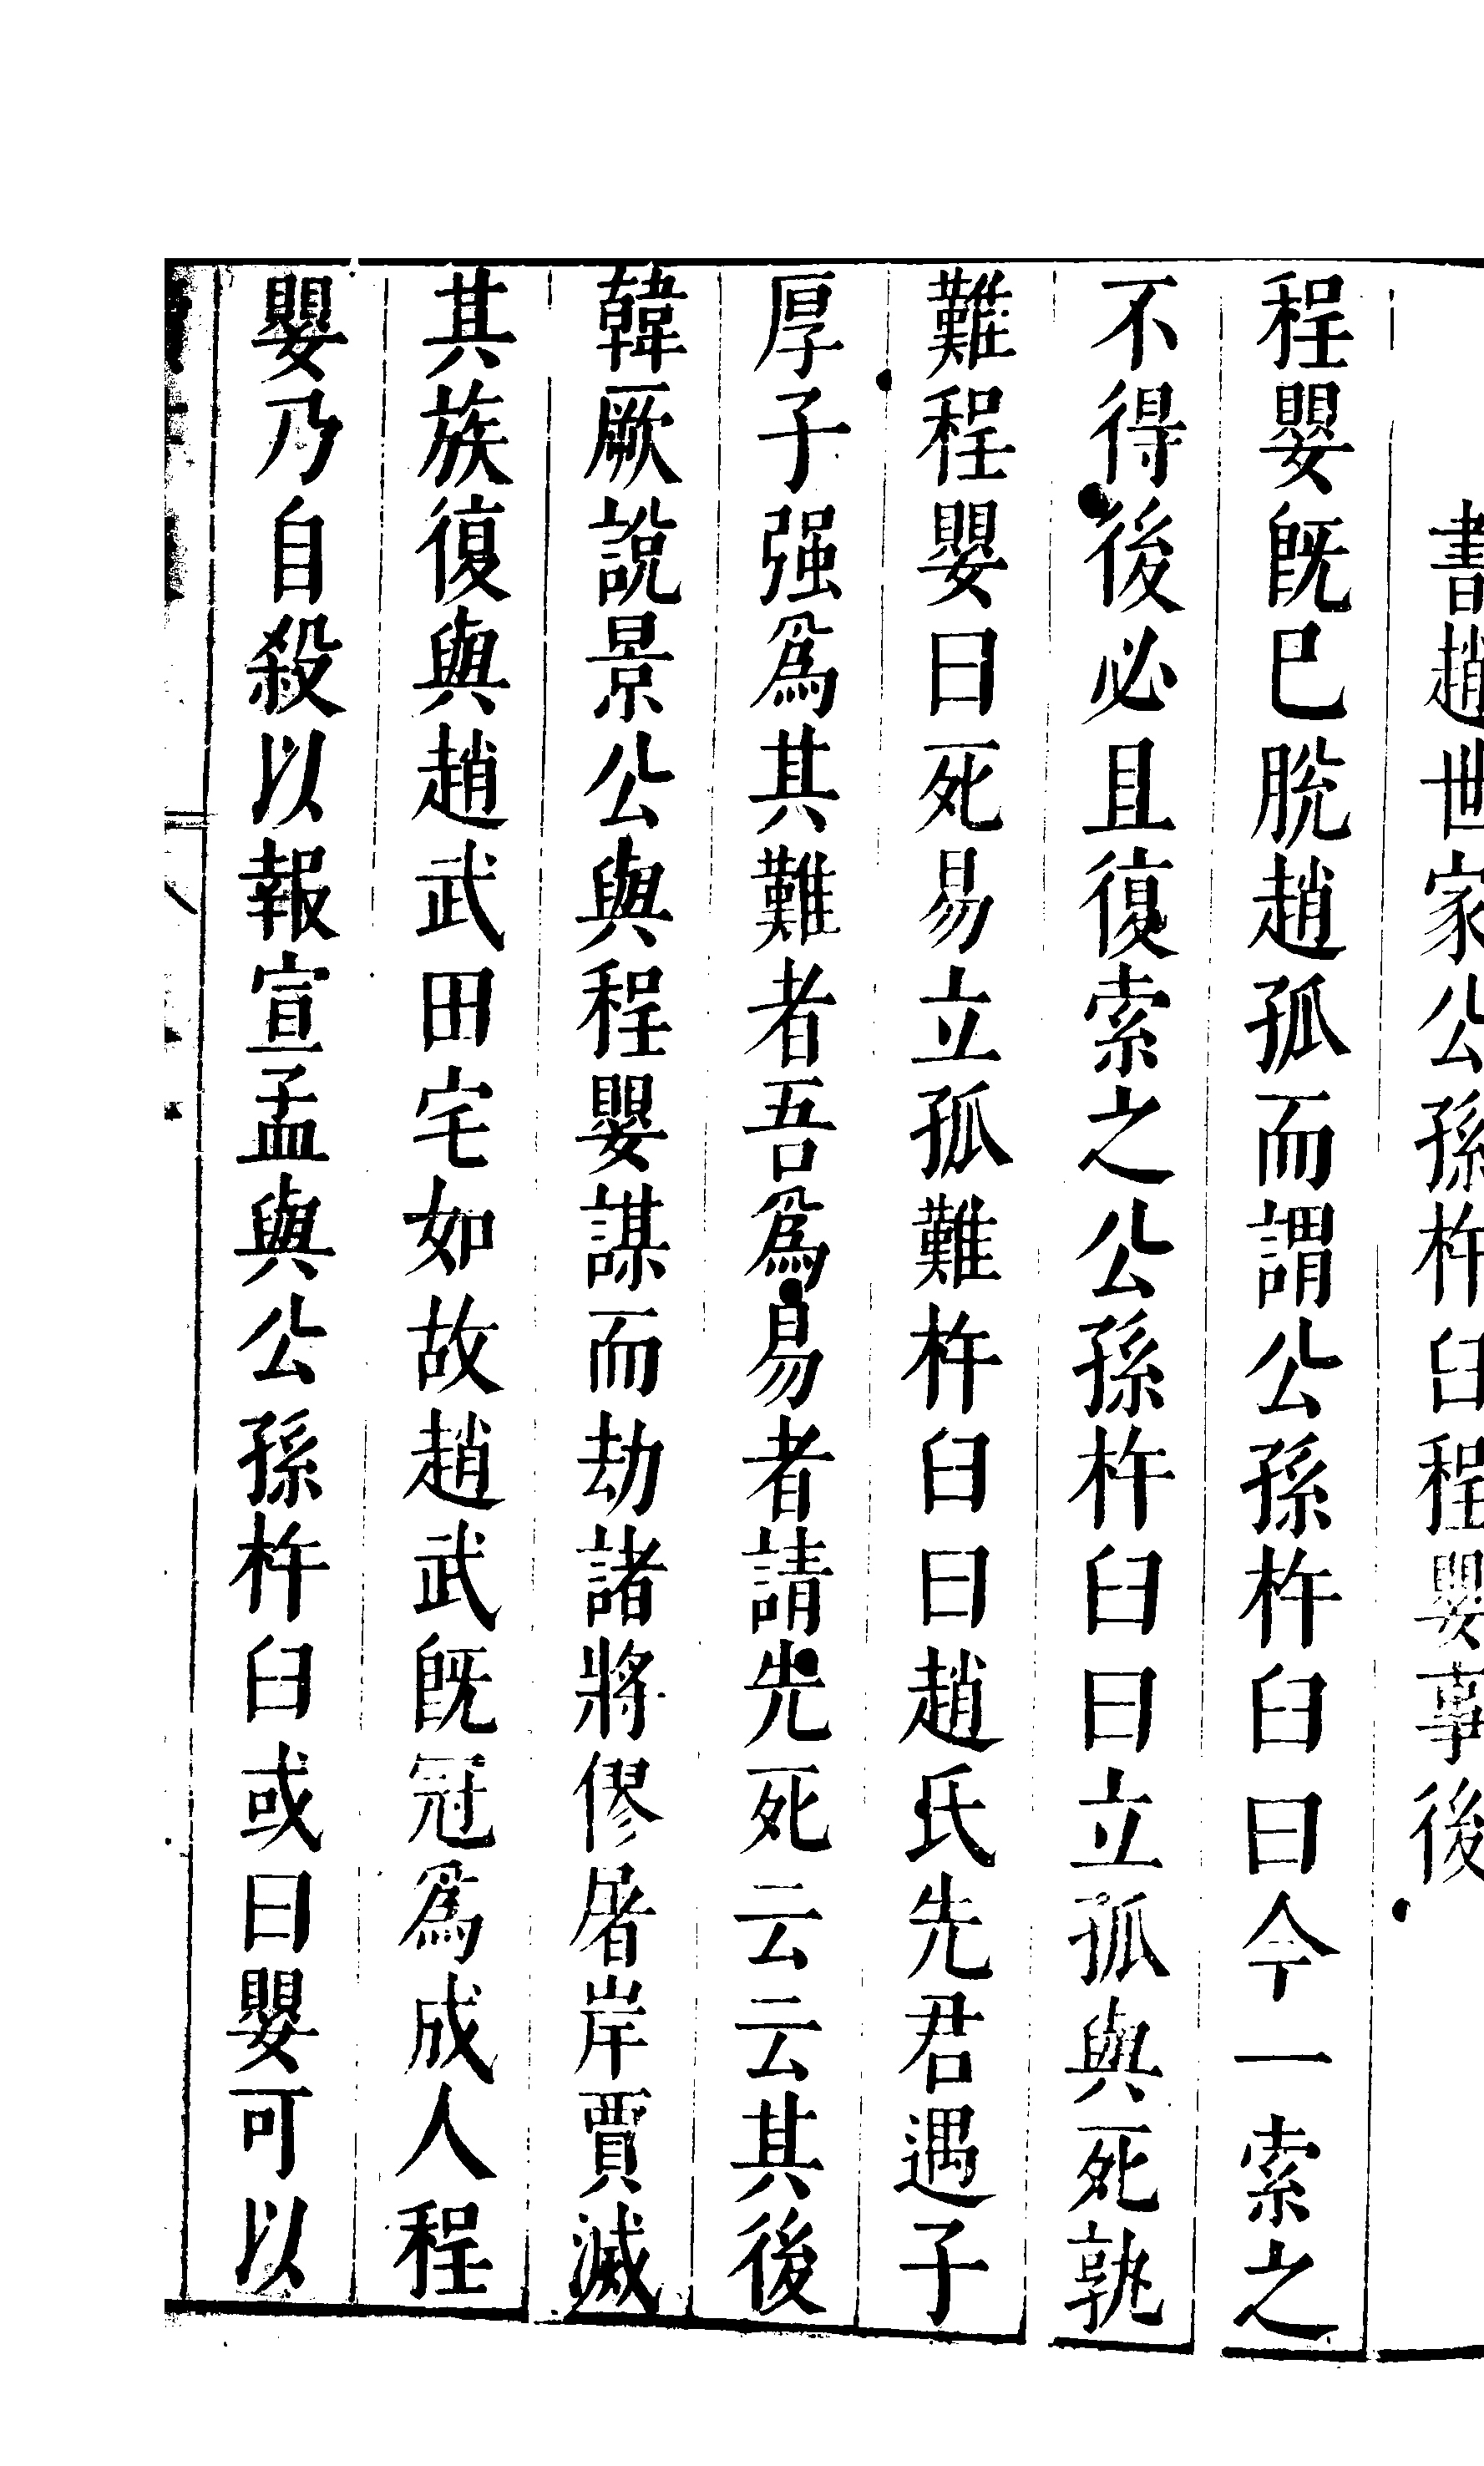 書趙世家公孫杵臼程嬰事後
程嬰既已脫趙孤而謂公孫杵臼曰今一索之
不得後必且復索之公孫杵臼曰立孤與死孰
難程嬰曰死易立孤難杵臼曰趙氏先君遇子
厚子强爲其難者吾爲易者請先死云云其後
韓厥說景公與程嬰謀而劫諸將僇屠岸賈滅
其族復與趙武田宅如故趙武既冠爲成人程
嬰乃自殺以報宣孟與公孫杵臼或曰嬰可以